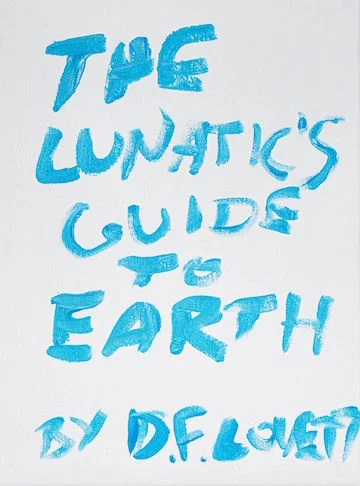 THE
LUNATIC'S
GUIDE
TO
EARTH
BY D.F. LOVETT